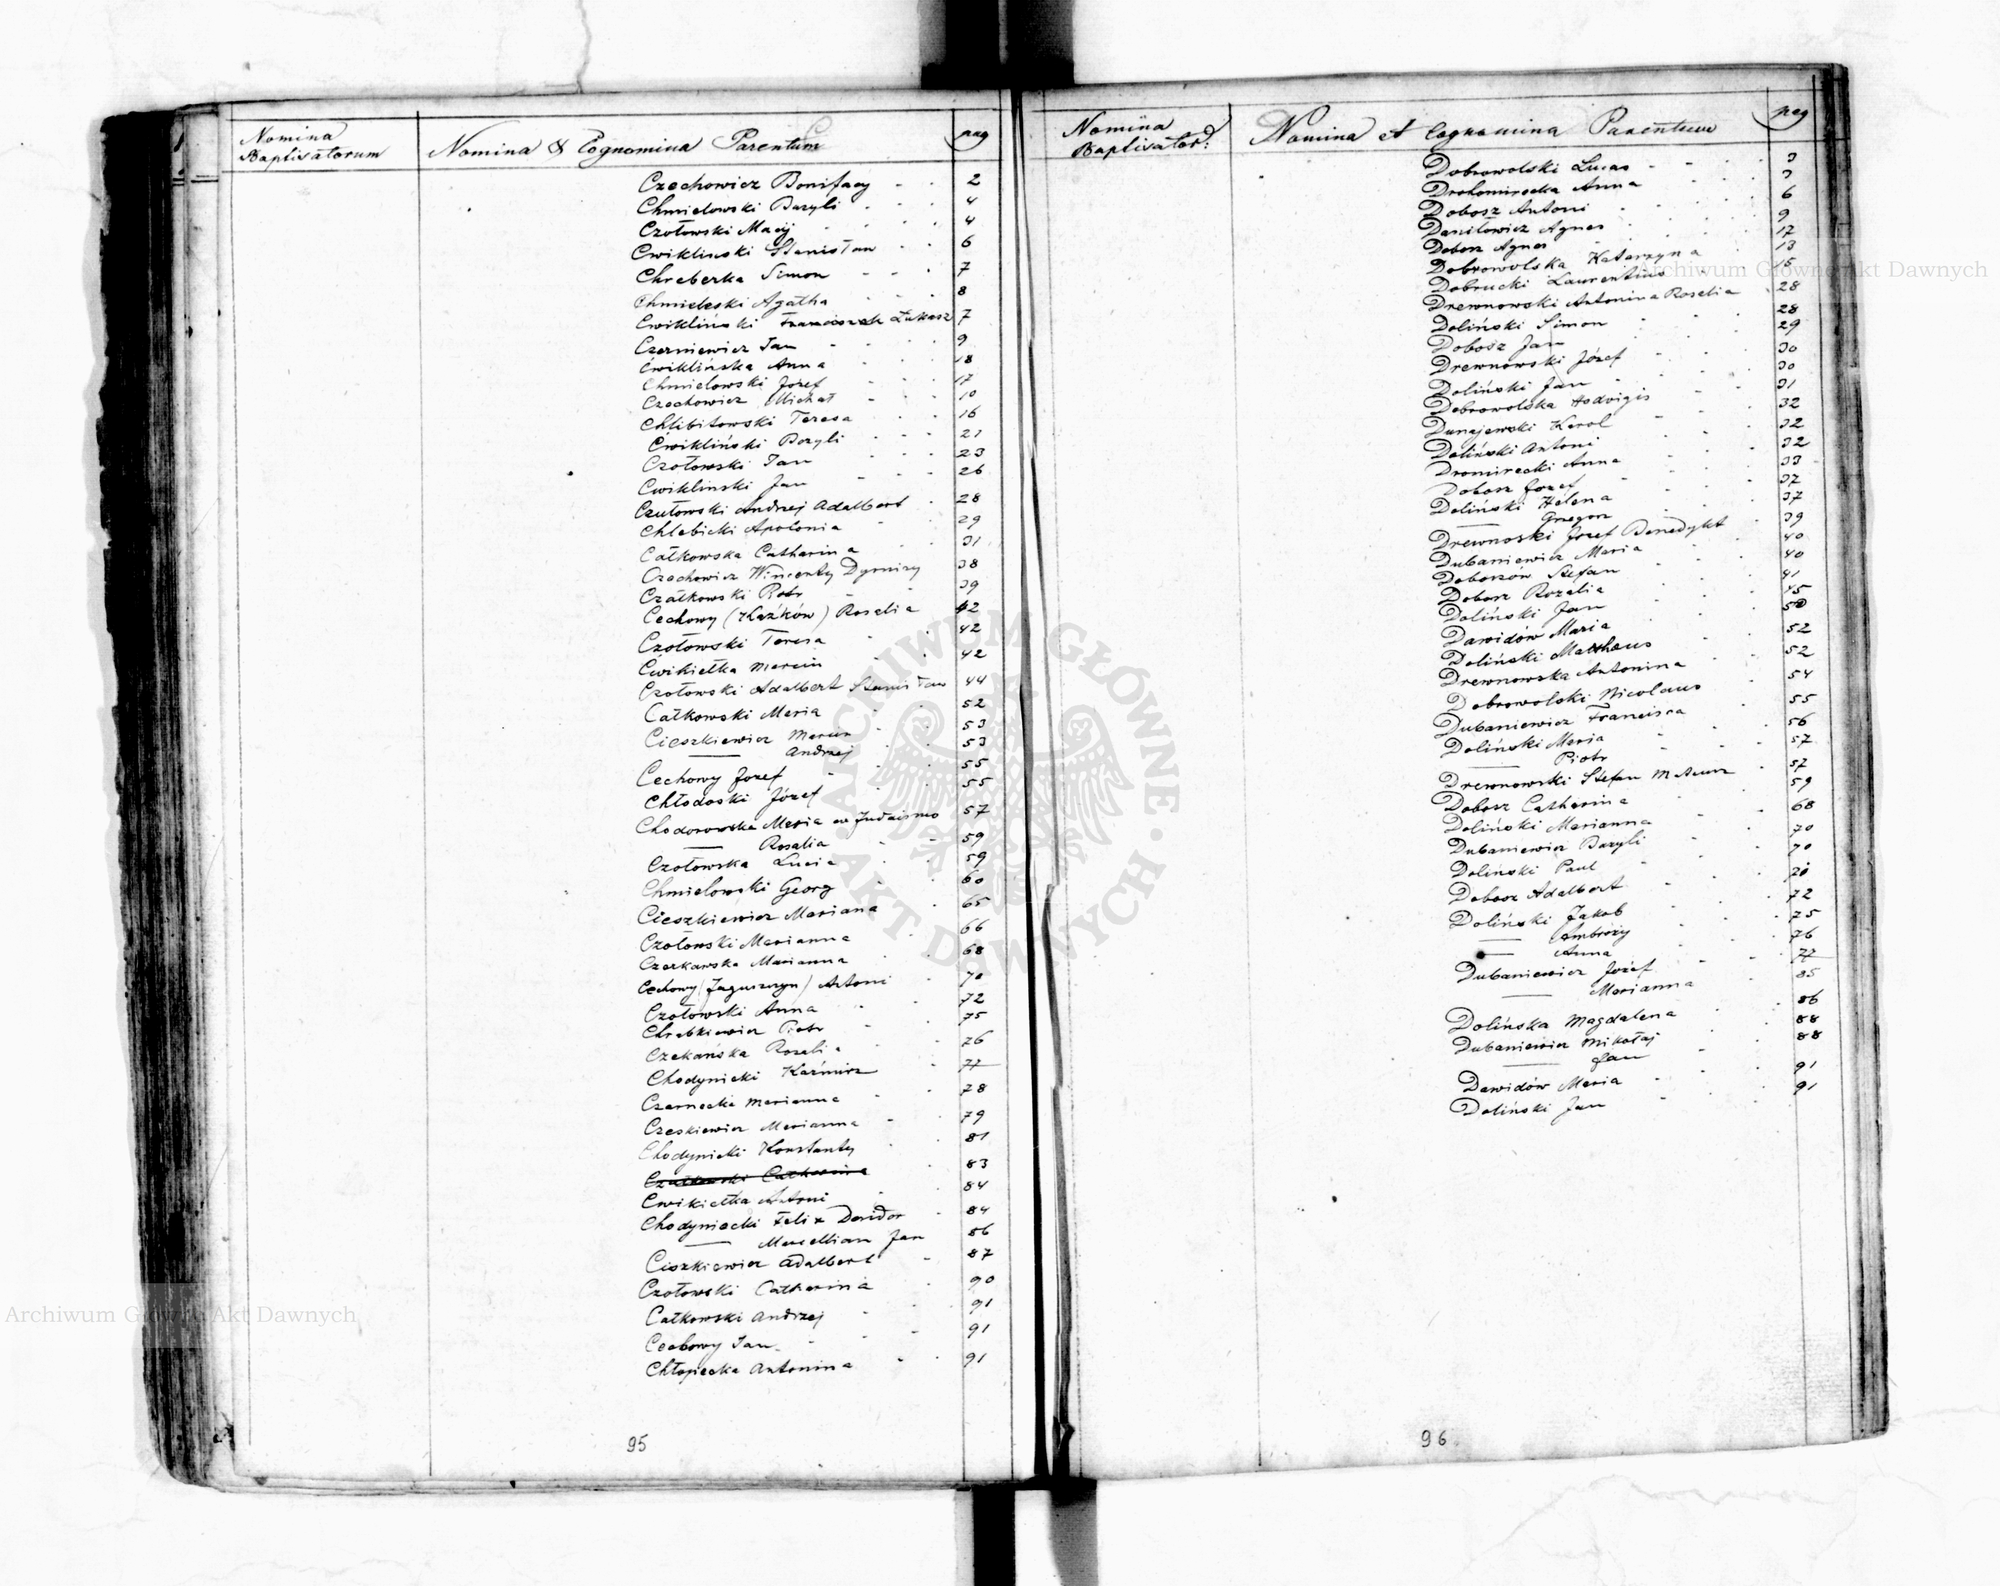 Nomina
Baptisatorum
Nomina & Cognomina Parentum
pag
Czechowicz Bonifacy 2
Chmielowski Bazyli 4
Czołowski Macij 4
Cwiklinski Stanisław 6
Chreberka Simon 7
Chmieleski Agatha 8
Cwikliński Franciszek Łukasz 7
Czerniewicz Jan 9
Ćwiklińska Anna 18
Chmielowski Józef 17
Czechowicz Michał 10
Chlibitowski Teresa 16
Ćwikliński Bazyli 21
Czołowski Jan 23
Cwiklinski Jan 26
Czułowski Andrzej Adalbert 28
Chlebicki Apolonia 29
Całkowska Catharina 31
Czechowicz Wincenty Dyonizy 38
Czałkowski Piotr 39
Cechowy (Każków) Rosalia 42
Czołowski Teresa 42
Ćwikiełka Marcin 42
Czołowski Adalbert Stanisław 44
Całkowski Maria 52
Cieszkiewicz Marcin 53
—— Andrzej 53
Cechowy Jozef 55
Chłodoski Józef 55
Chodorowska Maria ex Judaismo 57
—— Rosalia 59
Czołowska Lucia 59
Chmielowski Georg 60
Cieszkiewicz Mariana 65
Czołowski Marianna 66
Czerkawska Marianna 68
Cechowy (Jaguszczyn) Antoni 70
Czołowski Anna 72
Chrebkiewicz Piotr 75
Czekańska Rozalia 76
Chodynicki Kazimirz 77
Czarnecka Marianna 78
Czeskiewicz Marianna 79
Chodynicki Konstanty 81
Czałkowski Catharina 83
Cwikiełka Antoni 84
Chodyniecki Felix Dawidor 84
—— Marcellian Jan 86
Ciszkiewicz Adalbert 87
Czołowski Catharina 90
Całkowski Andrzej 91
Cechowy Jan 91
Chłopiecka Antonina 91
95
Nomina
Baptisator:
Nomina et Cognomina Parentum
pag
Dobrowolski Lucas 3
Drohomirecka Anna 3
Dobosz Antoni 6
Daniłowicz Agnes 9
Dobosz Agnes 17
Dobrowolska Katarzyna 13
Dobrucki Laurentius 15
Drewnowski Antonina Rosalia 28
Doliński Simon 28
Dobosz Jan 29
Drewnowski Józef 30
Doliński Jan 30
Dobrowolska Hedvigis 31
Dunajewski Karol 32
Doliński Antoni 32
Dromirecki Anna 32
Dobosz Jozef 33
Doliński Helena 37
—— Grzegorz 37
Drewnoski Jozef Benedykt 39
Dubaniewicz Maria 40
Doboszów Stefan 40
Dobosz Rozalia 41
Doliński Jan 45
Dawidów Maria 50
Doliński Matthaus 52
Drewnowska Antonina 52
Dobrowolski Nicolaus 54
Dubaniewicz Francisca 55
Doliński Maria 56
—— Piotr 57
Drewnowski Stefan 57
Dobosz Catharina 59
Doliński Marianna 68
Dubaniewicz Bazyli 70
Doliński Paul 70
Dobosz Adalbert 70
Doliński Jakob 72
—— Ambroży 75
—— Anna 76
Dubaniewicz Józef 77
—— Marianna 85
Dolińska Magdalena 86
Dubaniewicz Mikołaj 88
—— Jan 88
Dawidów Maria 91
Doliński Jan 91
96
Archiwum Główne Akt Dawnych
Archiwum Główne Akt Dawnych
ARCHIWUM GŁÓWNE
AKT DAWNYCH